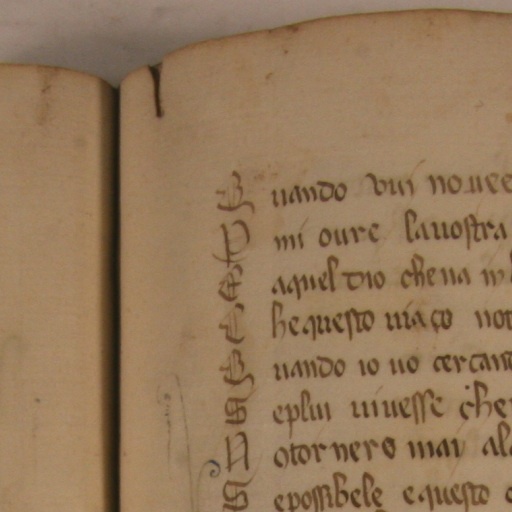 Quando vui no uee
Pmi oure la uostra
Eaquel dio che ua in
Che questo uiaço not
Quando io uo cercand
Se plui uiuesse che
Notornero mai ala
Se possibele e questo